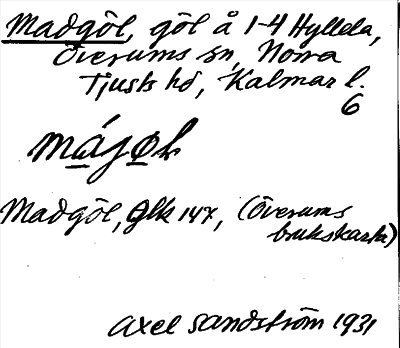 Madgöl, göl å 1-4 Hyllela,
Överums sn, Norra
Tjusts hd, Kalmar l.
6
májøl
Madgöl, Glk 147, (Överums
brukskarta)
Axel Sandström 1931